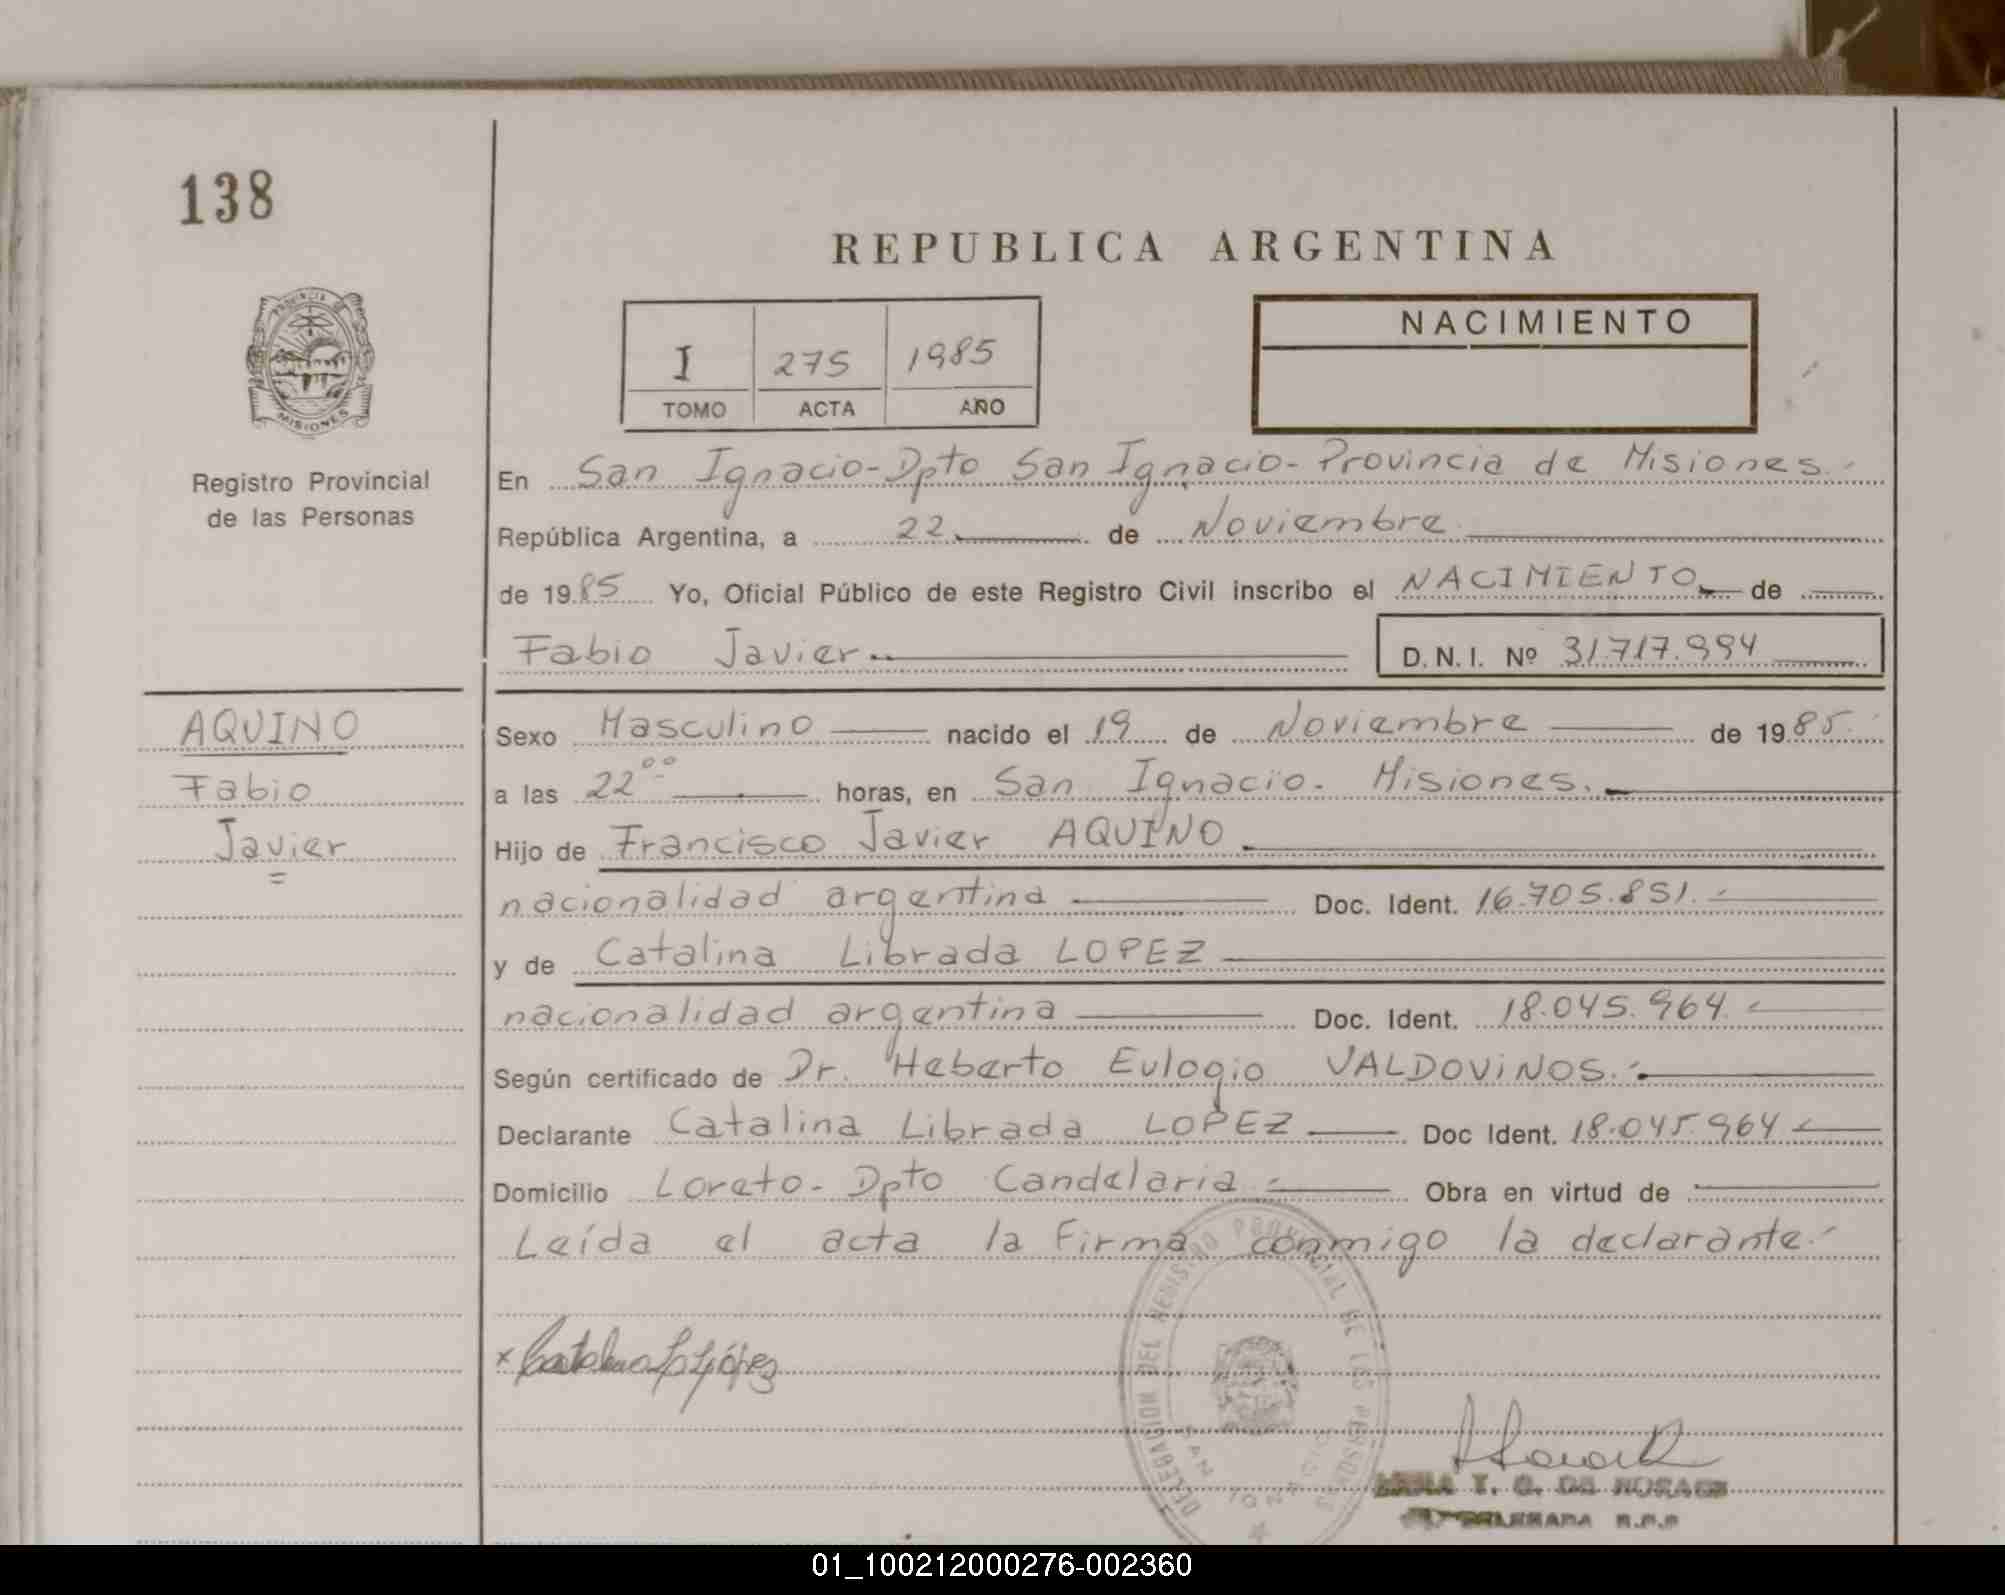 138
REPUBLICA ARGENTINA
PROVINCIA DE
MISIONES
I 275 1985
TOMO ACTA AÑO
NACIMIENTO
Registro Provincial
de las Personas
En San Ignacio-Dpto San Ignacio-Provincia de Misiones.-
República Argentina, a 22 de Noviembre
de 1985 Yo, Oficial Público de este Registro Civil inscribo el NACIMIENTO de
Fabio Javier.- D.N.I. Nº 31.717.994
AQUINO
Fabio
Javier
=
Sexo Masculino nacido el 19 de Noviembre de 1985.-
a las 22°° horas, en San Ignacio. Misiones.
Hijo de Francisco Javier AQUINO
nacionalidad argentina Doc. Ident. 16.705.851.-
y de Catalina Librada LOPEZ
nacionalidad argentina Doc. Ident. 18.045.964.-
Según certificado de Dr. Heberto Eulogio VALDOViNOS.-
Declarante Catalina Librada LOPEZ Doc Ident. 18.045.964
Domicilio Loreto- Dpto Candelaria.- Obra en virtud de
Leída el acta la Firma conmigo la declarante.-
x Catalina L López
DELEGACION DEL REGISTRO PROVINCIAL DE LAS PERSONAS
SAN IGNACIO
T. G. DE
DELEGADA R.P.P
01_100212000276-002360